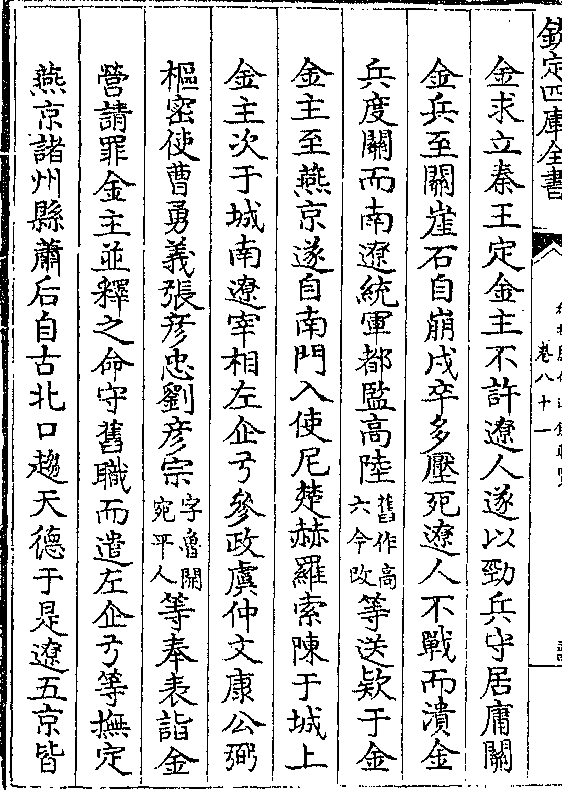 欽定四庫全書
卷八十一
金求立秦王定金主不許遼人遂以勁兵守居庸關
金兵至關崖石自崩戍卒多壓死遼人不戰而潰金
兵度關而南遼統軍都監高陸舊作高六今改等送欵于金
金主至燕京遂自南門入使尼楚赫羅索陳于城上
金主次于城南遼宰相左企弓參政虞仲文康公弼
樞密使曹勇義張彦忠劉彦宗字魯開宛平人等奉表詣金
營請罪金主並釋之命守舊職而遣左企弓等撫定
燕京諸州縣蕭后自古北口趨天德于是遼五京皆